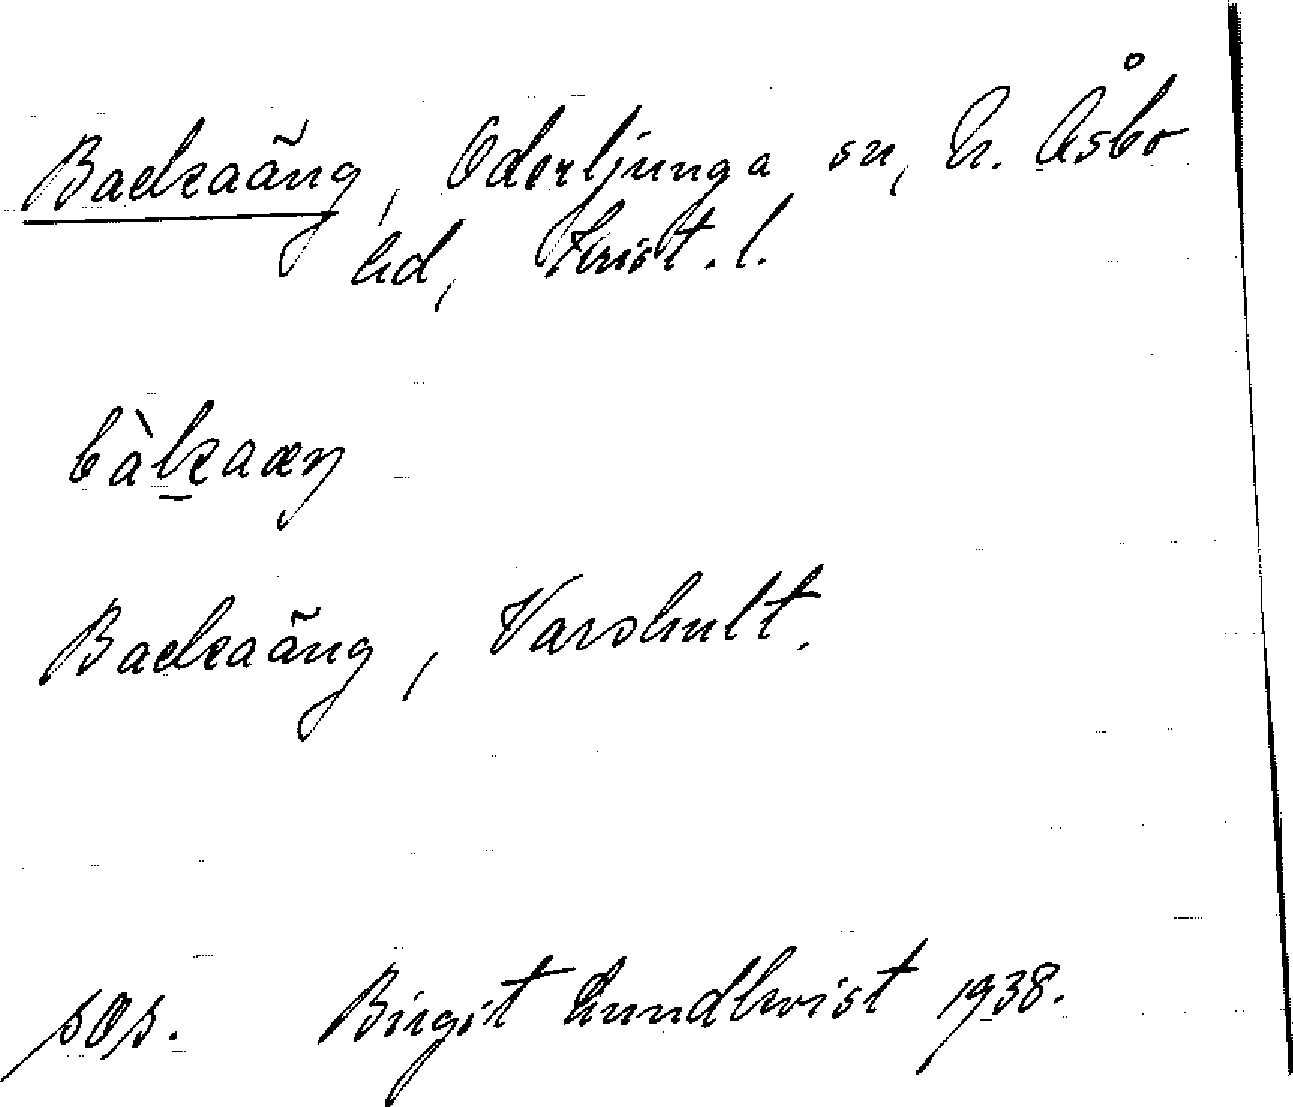 Backaäng, Oderljunga sn, N. Åsbo
hd, Krist. l.
bàkaæŋ
Backaäng, Varshult.
Birgit Lundkvist 1938.